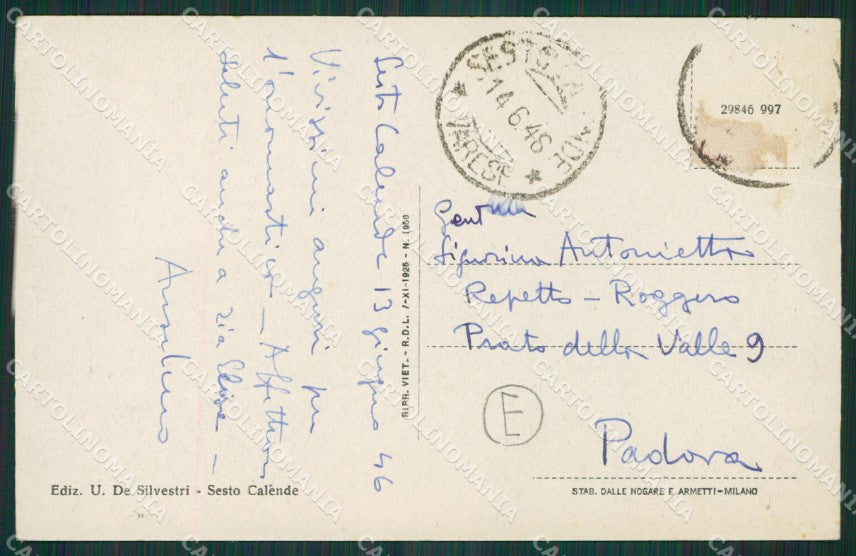 Sesto Calende 13 giugno 46
Vivissimi auguri per
l'onomastico - Affettuosi
saluti anche a zia Elisa -
Anselmo
RIPR. VIET. - R.D.L. 7-XI-1925 - N. 1950
SESTO CALENDE
14.6.46
* VARESE *
29846 997
Gent
Signorina Antonietta
Repetto - Roggero
Prato della Valle 9
E
Padova
Ediz. U. De Silvestri - Sesto Calende
STAB. DALLE NOGARE E ARMETTI-MILANO
CARTOLINOMANIA